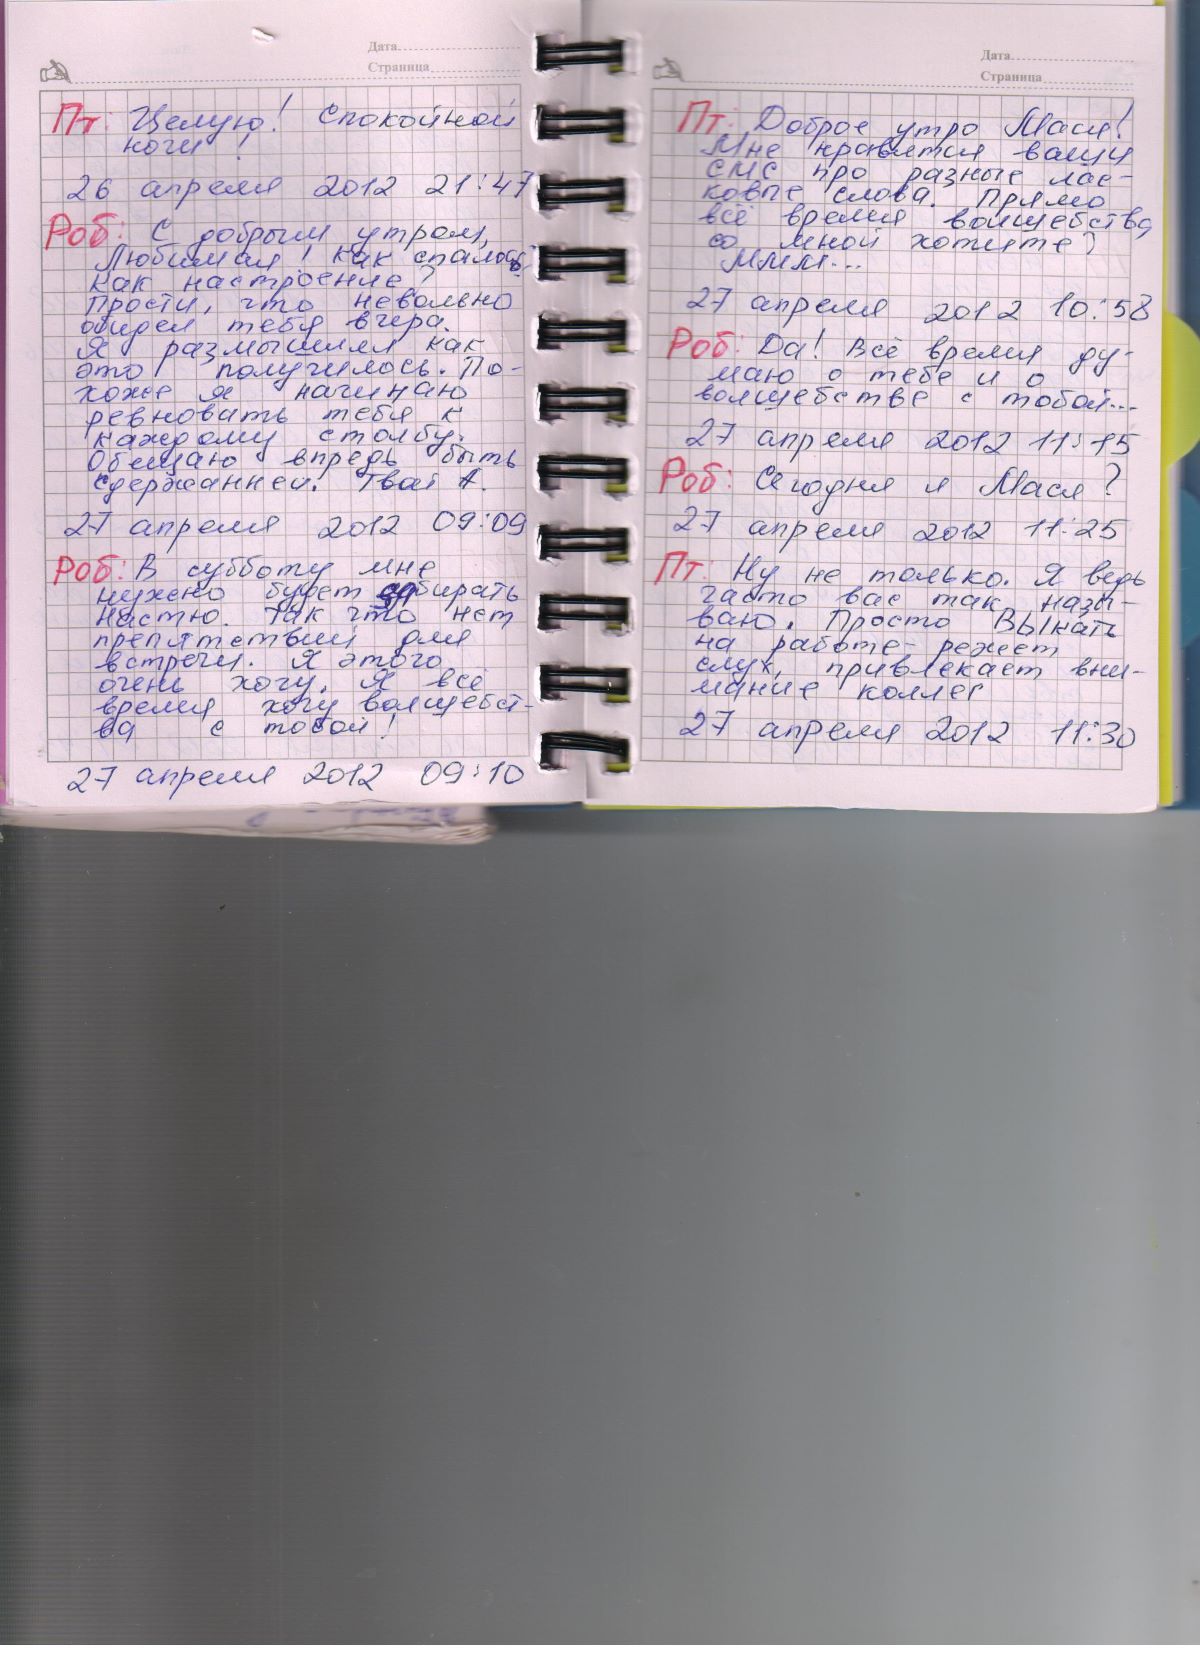 Дата
Страница
Пт: Целую! Спокойной
ночи!
26 апреля 2012 21:47
Роб: С добрым утром,
Любимая! Как спалось?
Как настроение?
Прости, что невольно
обидел тебя вчера.
Я размышлял как
это получилось. По-
хоже я начинаю
ревновать тебя к
каждому столбу.
Обещаю впредь быть
сдержанней. Твой А.
27 апреля 2012 09:09
Роб: В субботу мне
нужно будет забирать
Настю. Так что нет
препятствий для
встречи. Я этого
очень хочу. Я всё
время хочу волшебст-
ва с тобой!
27 апреля 2012 09:10
Дата
Страница
Пт: Доброе утро Мася!
Мне нравятся ваши
СМС про разные лас-
ковые слова. Прямо
всё время волшебства
со мной хотите?
Ммм...
27 апреля 2012 10:58
Роб: Да! Всё время ду-
маю о тебе и о
волшебстве с тобой...
27 апреля 2012 11:15
Роб: Сегодня я Мася?
27 апреля 2012 11:25
Пт: Ну не только. Я ведь
часто вас так назы-
ваю. Просто ВЫкать
на работе- режет
слух, привлекает вни-
мание коллег
27 апреля 2012 11:30